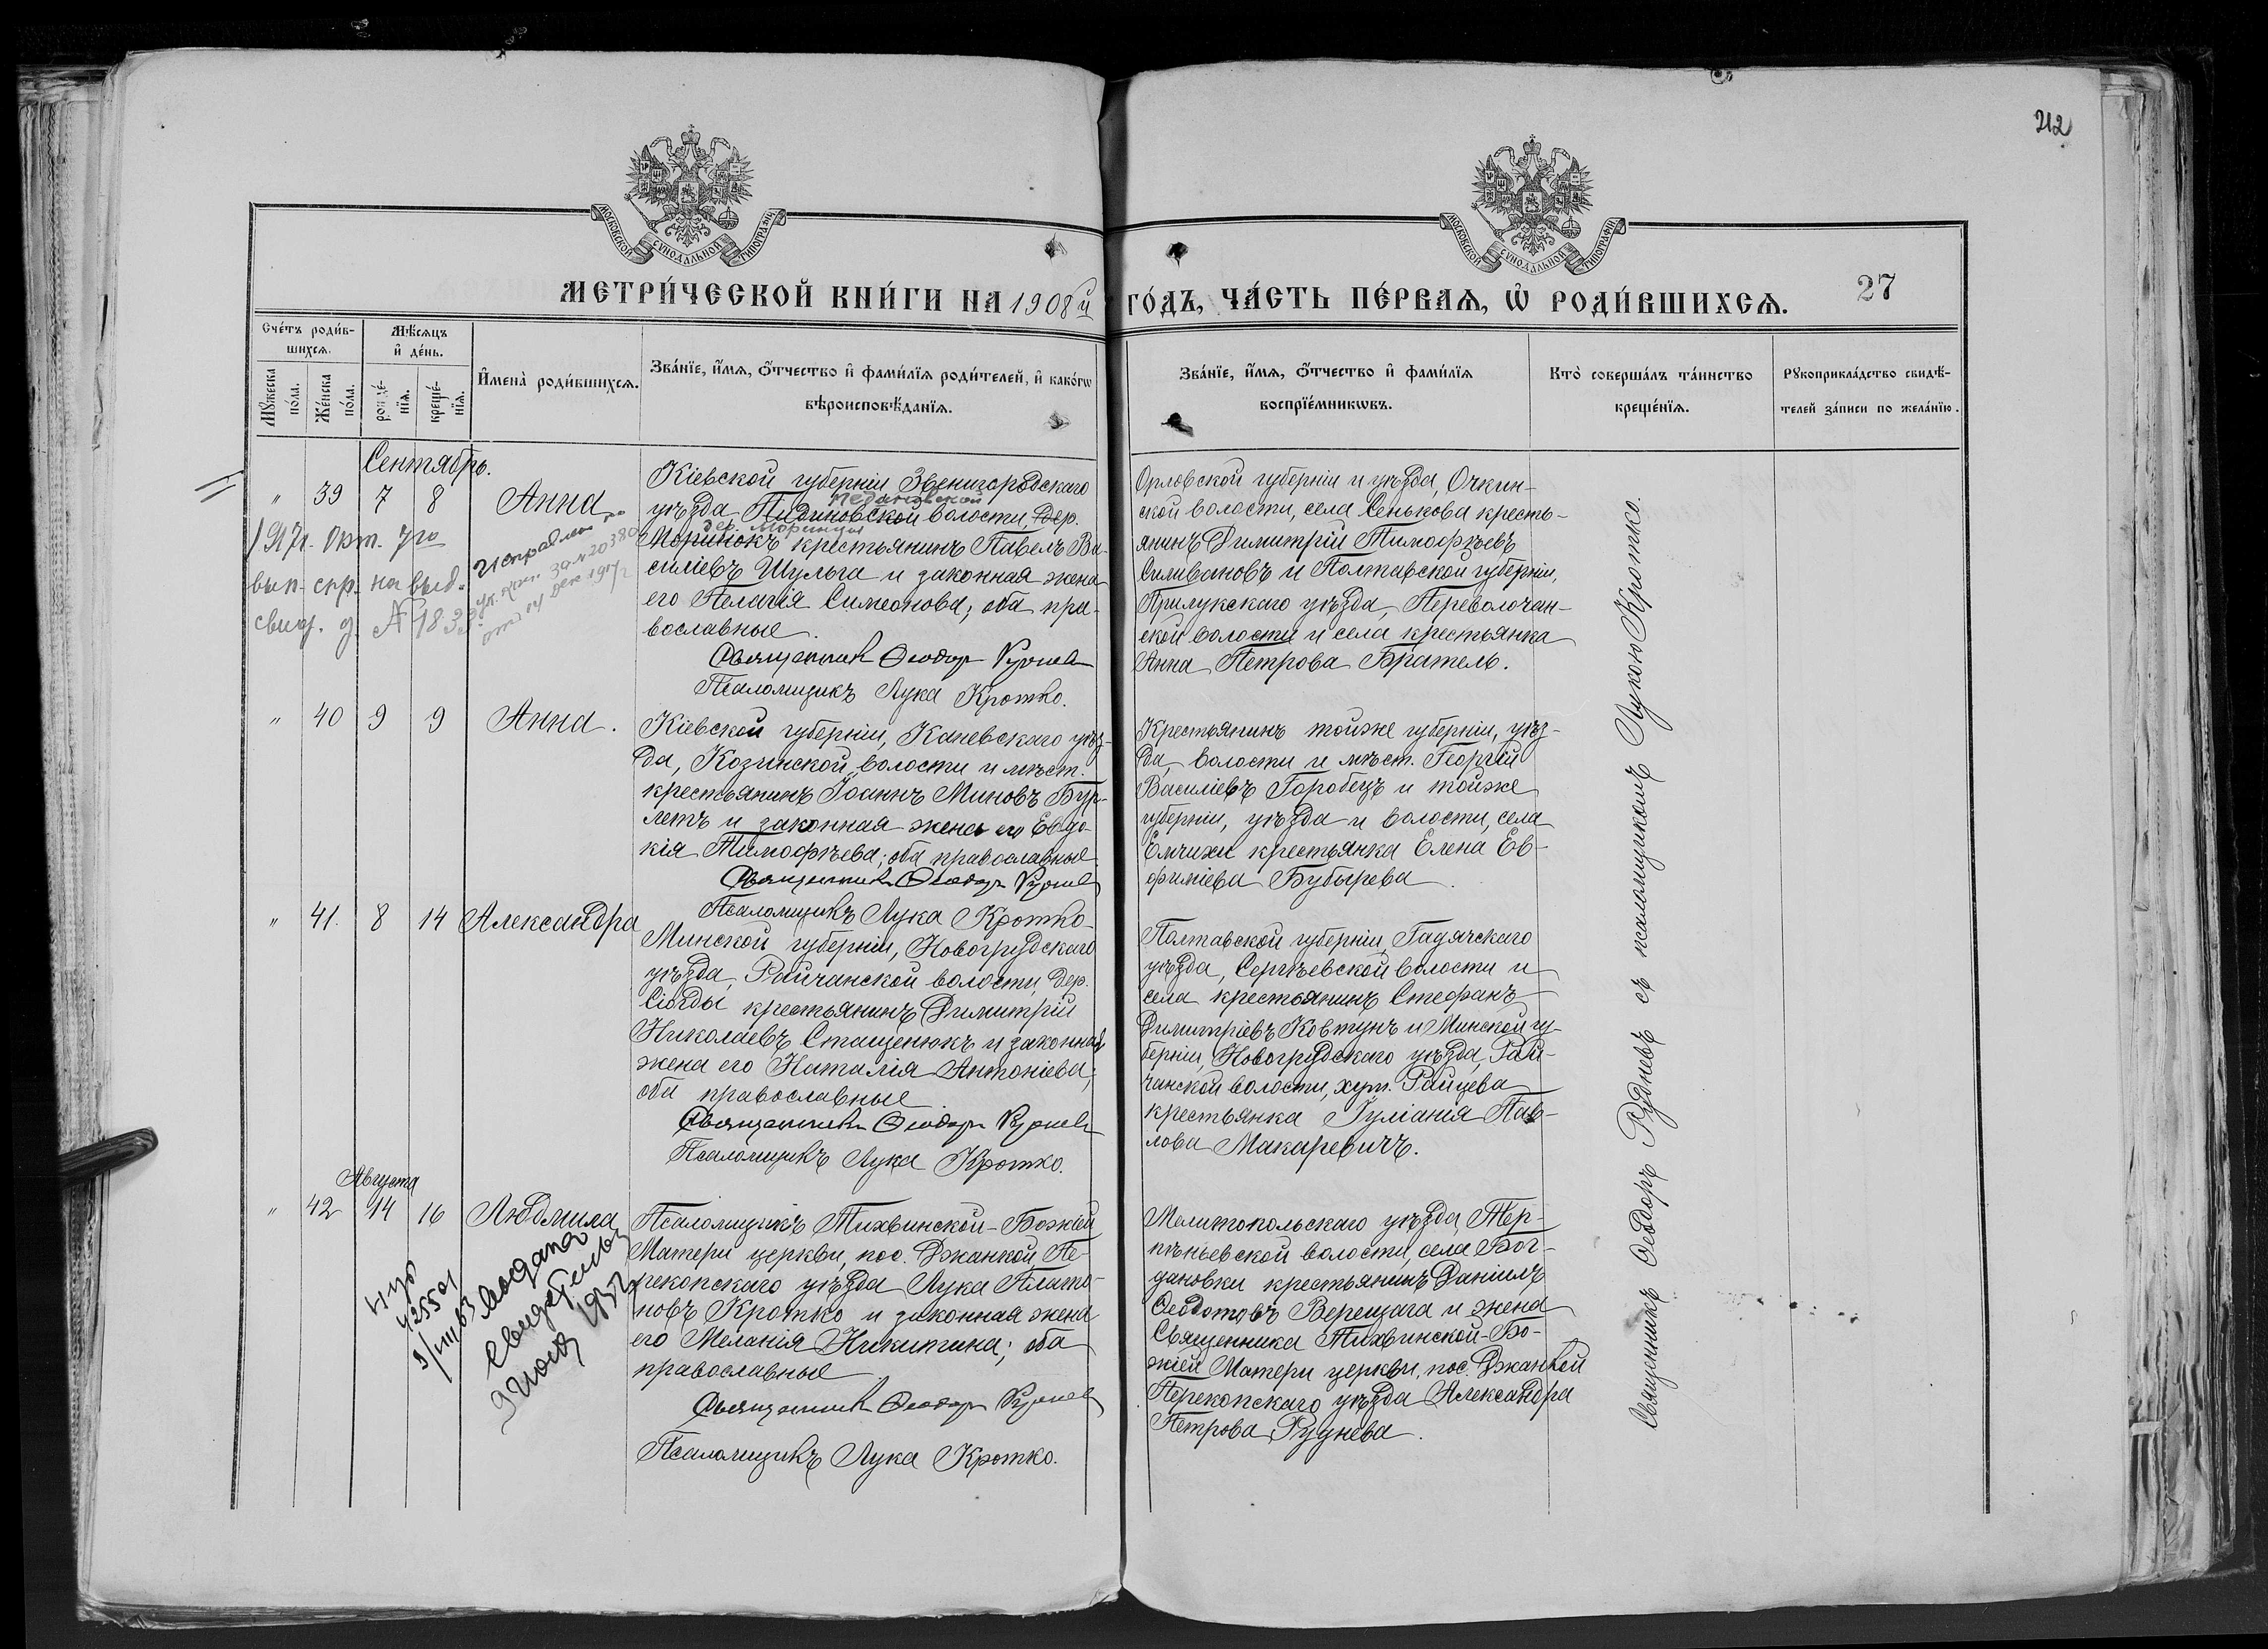 212
МОСКОВСКОЙ СѴНОДАЛЬНОЙ ТИПОГРАФІИ
МОСКОВСКОЙ СѴНОДАЛЬНОЙ ТИПОГРАФІИ
МЕТРИ́ЧЕСКОЙ КНИ́ГИ НА 1908й ГО́ДЪ, ЧА́СТЬ ПЕ́РВАѦ, Ѡ҆ РОДИ́ВШИХСѦ. 27
Сче́тъ роди́в-
шихсѧ.
Мꙋ́жеска по́ла.
Же́нска по́ла.
Мѣ́сѧцъ
и҆ де́нь.
рожде́-
нїѧ.
креще́-
нїѧ.
И҆мена̀ роди́вшихсѧ.
Зва́нїе, и҆́мѧ, ѻ҆́тчество и҆ фами́лїѧ роди́телей, и҆ како́гѡ
вѣроисповѣ́данїѧ.
Зва́нїе, и҆́мѧ, ѻ҆́тчество и҆ фами́лїѧ
воспрїе́мникѡвъ.
Кто̀ соверша́лъ та́инство
креще́нїѧ.
Рꙋкоприкла́дство свидѣ́-
телей за́писи по жела́нїю.
Сентябрь.
" 39 7 8 Анна
Кіевской губерніи Звенигородскаго
педановской
уѣзда Пидиновской волости, дер.
дер. Моринцы
Моринокъ крестьянинъ Павелъ Ва-
силіевъ Шульга и законная жена
его Пелагія Симеонова; оба пра-
вославные.
Священник Феодор Руднев
Псаломщикъ Лука Кротко.
Орловской губерніи и уѣзда, Очкин-
ской волости, села Сенькова кресть-
янинъ Димитрій Тимофѣевъ
Силивановъ и Полтавской губерніи,
Прилукскаго уѣзда, Переволочан-
ской волости и села крестьянка
Анна Петрова Братель.
1917г. Окт. 7го
вып. спр. на выд.
свид. д. № 1833.
Исправлен по
ук. кон. за № 20380
от 14 дек 1917г
" 40 9 9 Анна.
Кіевской губерніи, Каневскаго уѣз-
да, Козинской волости и мѣст.
крестьянинъ Іоаннъ Миновъ Бур-
летъ и законная жена его Евдо-
кія Тимофѣева; оба православные
Священник Феодор Руднев
Псаломщикъ Лука Кротко
Крестьянинъ тойже губерніи, уѣз-
да, волости и мѣст. Георгій
Василіевъ Горобецъ и тойже
губерніи, уѣзда и волости, села
Емчихи крестьянка Елена Ев-
фиміева Бубырева.
" 41. 8 14 Александра
Минской губерніи, Новогрудскаго
уѣзда, Райчанской волости, дер.
крестьянинъ Димитрій
Николаевъ Стащенюкъ и законная
жена его Наталія Антоніева;
оба православные
Священник Феодор Руднев
Псаломщикъ Лука Кротко.
Полтавской губерніи, Гадячскаго
уѣзда, Сергѣевской волости и
села крестьянинъ Стефанъ
Димитріевъ Ковтунъ и Минской гу-
берніи, Новогрудскаго уѣзда, Рай-
чанской волости, хут. Райцева
крестьянка Іуліанія Пав-
лова Макаревичъ.
Августа
" 42 14 16 Людмила
Псаломщикъ Тихвинской-Божіей
Матери церкви, пос. Джанкой, Пе-
рекопскаго уѣзда Лука Плато-
новъ Кротко и законная жена
его Меланія Никитина; оба
православные.
Священник Феодор Руднев
Псаломщикъ Лука Кротко.
Мелитопольскаго уѣзда, Тер-
пѣньевской волости, села Бог-
дановки крестьянинъ Даніилъ
Феодотовъ Верещага и жена
Священника Тихвинской-Бо-
жіей Матери церкви, пос. Джанкой
Перекопскаго уѣзда Александра
Петрова Руднева.
Выдано
свидетельво
1932
Священникъ Феодоръ Рудневъ съ псаломщикомъ Лукою Кротко.